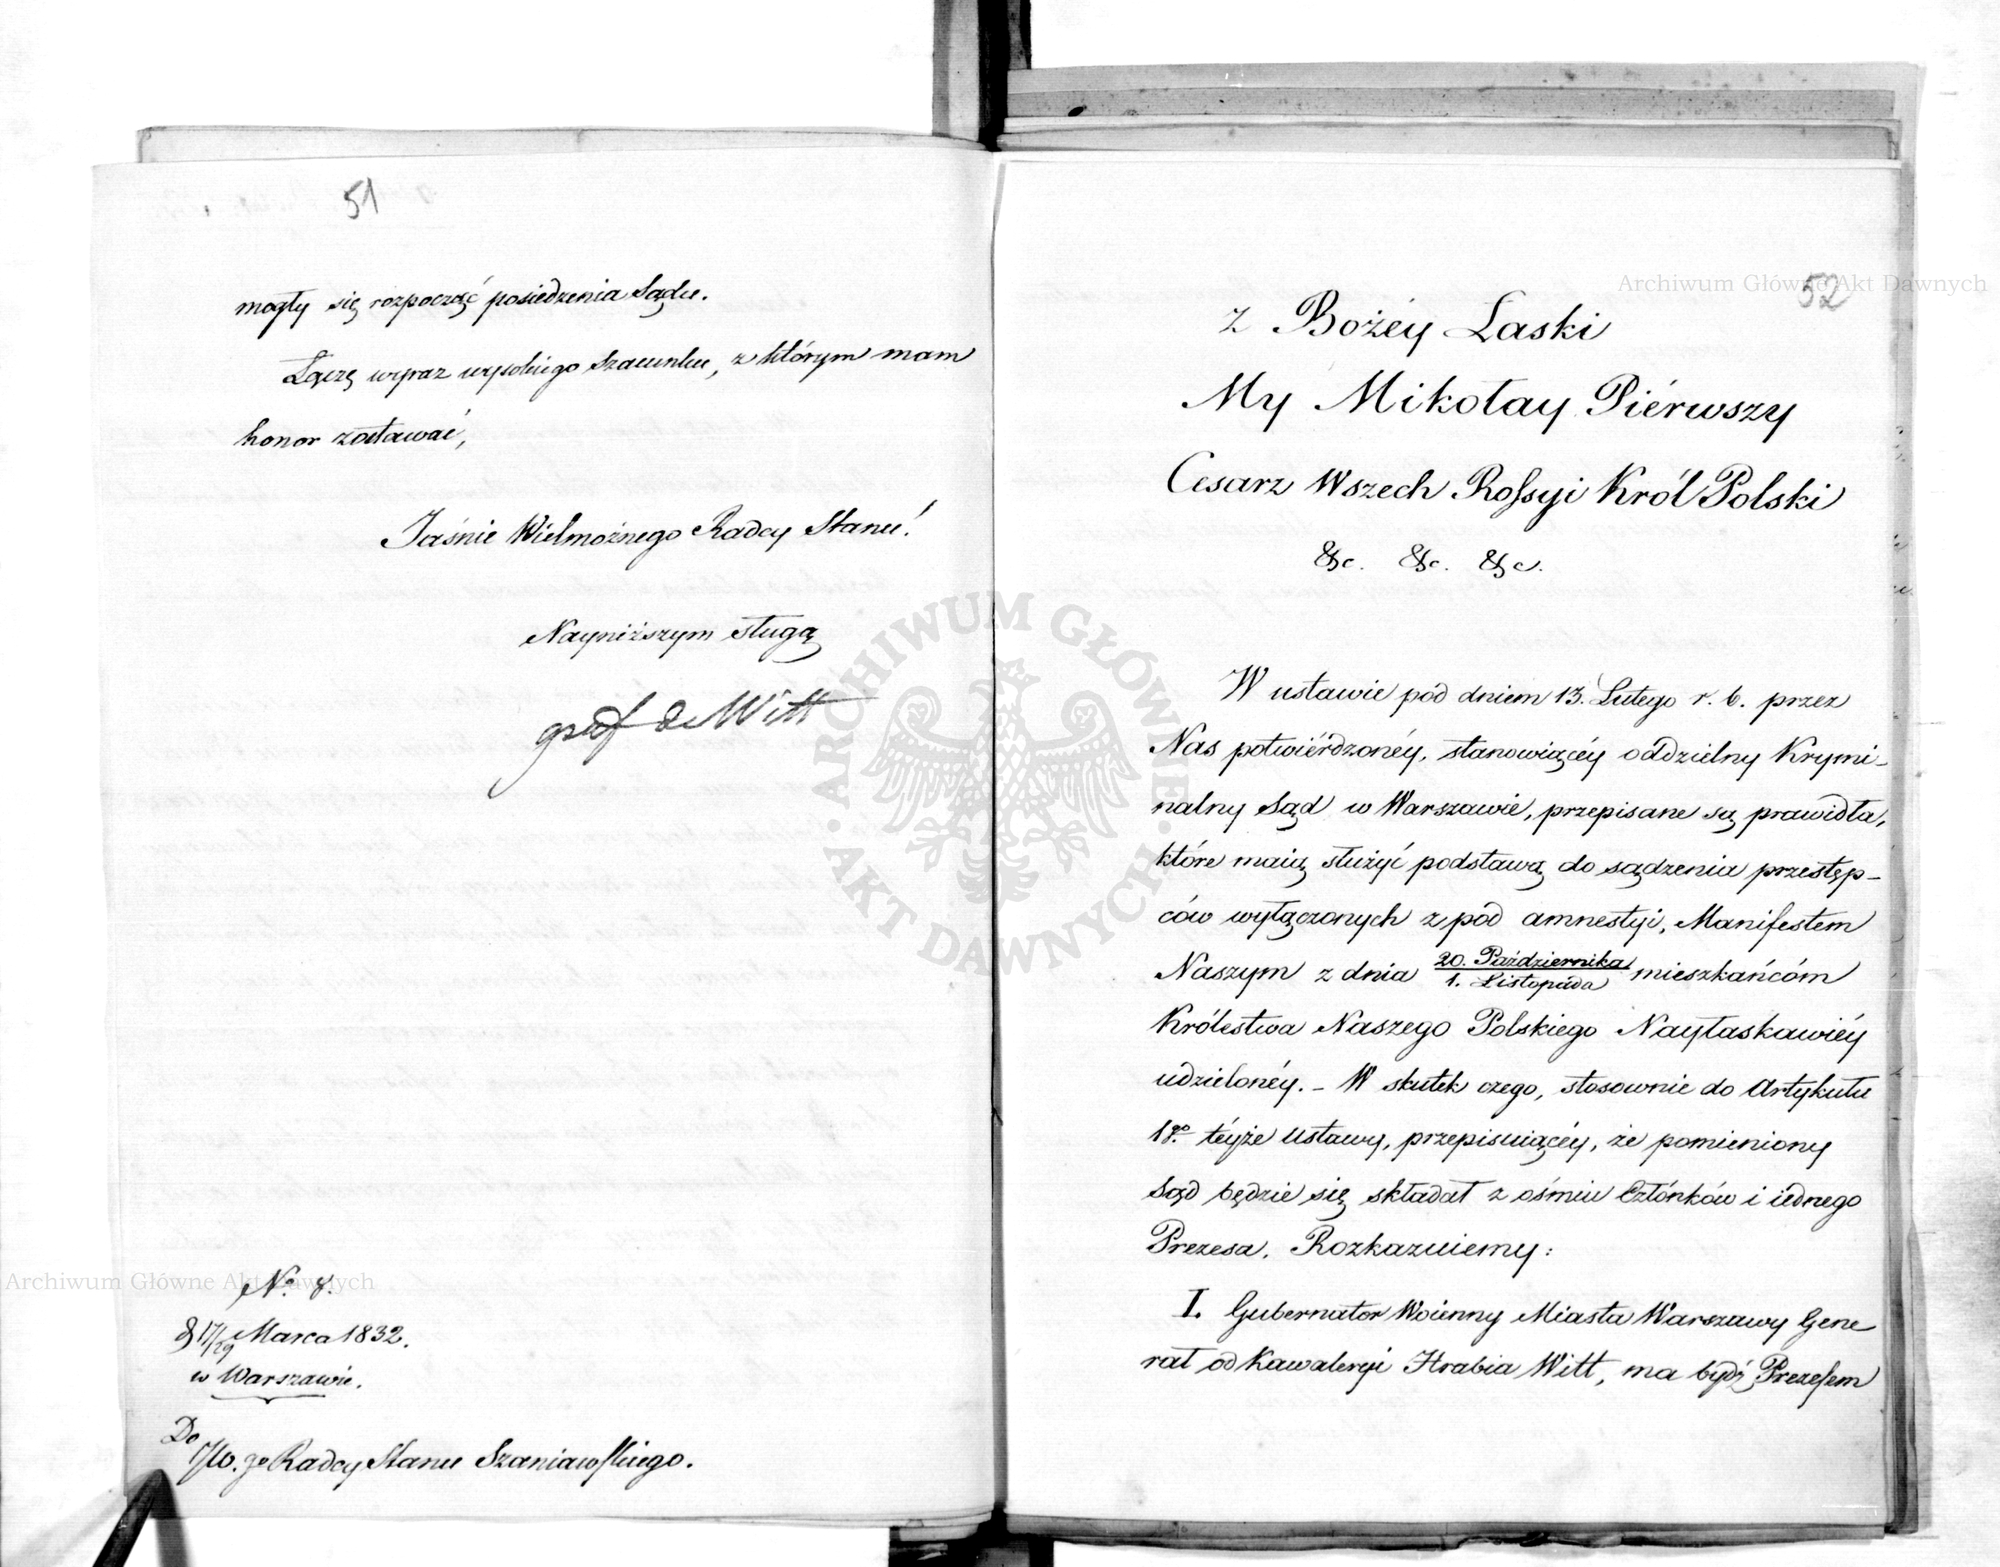 51
mogły się rozpocząć posiedzenia Sądu.
Łączę wyraz wysokiego Szacunku, z którym mam
honor zostawać,
Jaśnie Wielmożnego Radcy Stanu!
Nayniższym sługą
graf de Witt
N° 8.
d 17/29 Marca 1832.
w Warszawie.
Do
JW. go Radcy Stanu Szaniawskiego.
52
Z Bożéy Łaski
My Mikołay Piérwszy
Cesarz Wszech Rossyi Król Polski
&c. &c. &c.
W ustawie pod dniem 13. Lutego r. b. przez
Nas potwiérdzonéy, stanowiącéy oddzielny Krymi-
nalny Sąd w Warszawie, przepisane są prawidła,
które maią służyć podstawą do sądzenia przestęp-
ców wyłączonych z pod amnestyi, Manifestem
Naszym z dnia 20. Października/1. Listopada mieszkańcóm
Królestwa Naszego Polskiego Nayłaskawiéy
udzielonéy. - W skutek czego, stosownie do Artykułu
1go téyże Ustawy, przepisuiącéy, że pomieniony
Sąd będzie się składał z ośmiu Członków i iednego
Prezesa, Rozkazuiemy:
I. Gubernator Woienny Miasta Warszawy Gene
rał od Kawaleryi Hrabia Witt, ma bydź Prezesem
Archiwum Główne Akt Dawnych
Archiwum Główne Akt Dawnych
ARCHIWUM GŁÓWNE · AKT DAWNYCH ·